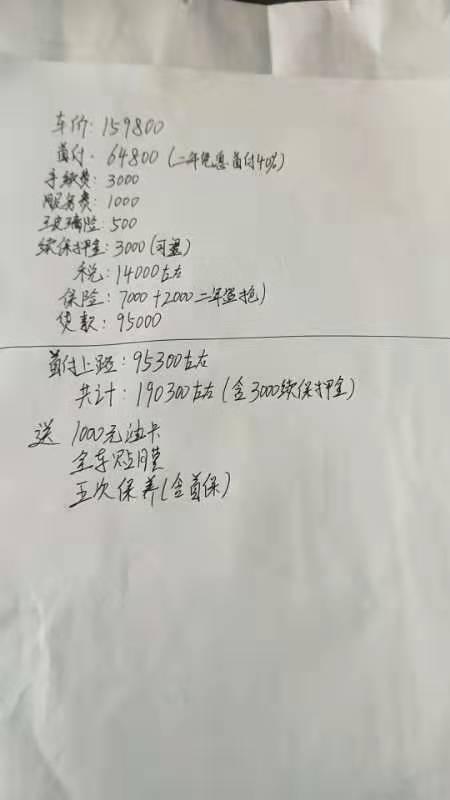 车价: 159800
首付: 64800 (二年免息首付40%)
手续费: 3000
服务费: 1000
玻璃险: 500
续保押金: 3000 (可退)
税: 14000左右
保险: 7000+2000二年盗抢)
贷款: 95000
首付上路: 95300左右
共计: 190300左右(含3000续保押金)
送 1000元油卡
全车贴膜
五次保养(含首保)